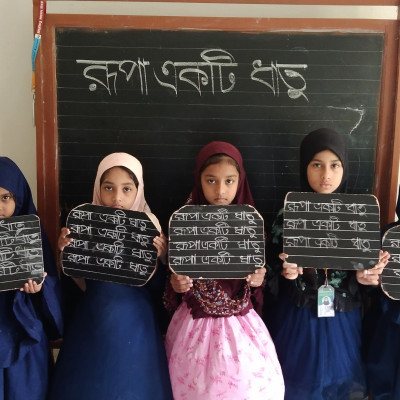 রূপা একটি ধাতু
রূপা একটি ধাতু
রূপা একটি ধাতু
রূপা একটি ধাতু
রূপা একটি ধাতু
রূপা একটি ধাতু
রূপা একটি ধাতু
রূপা একটি ধাতু
রূপা একটি ধাতু
রূপা একটি ধাতু
রূপা একটি ধাতু
রূপা একটি ধাতু
রূপা একটি ধাতু